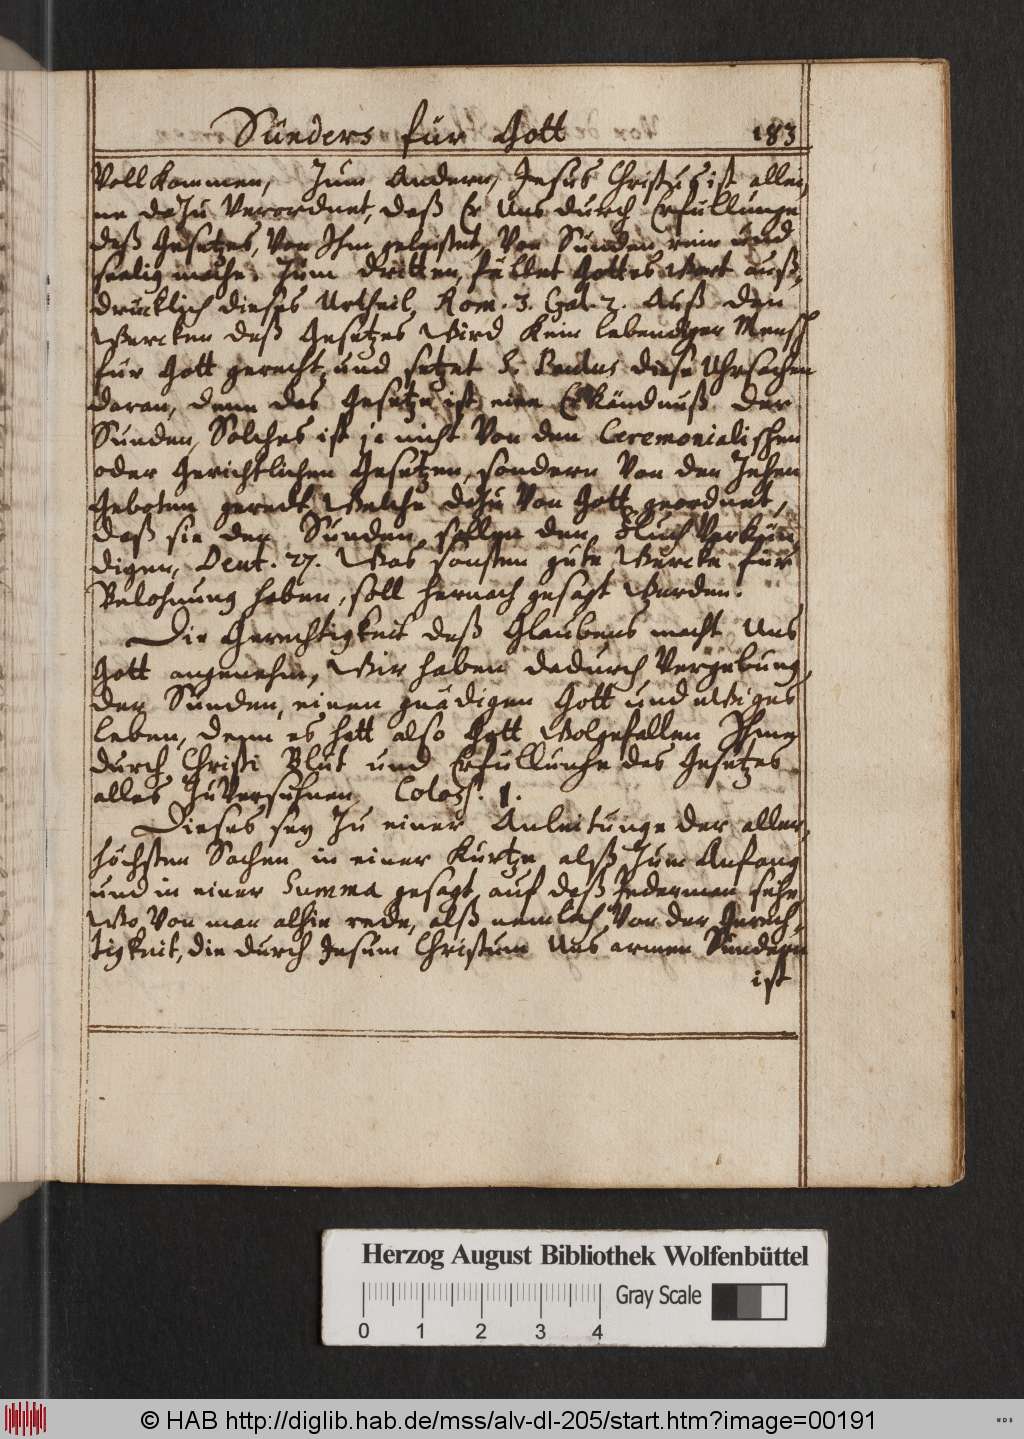 Sünders für Gott 183
Vollkommen, Zum Andern, Jesus Christus ist allei,
ne daZu Verordnet, daß Er Uns durch Erfüllunge
deß Gesetzes, Von Ihm geleistet, Von Sünden rein und
seelig mache. Zum dritten, fället Gottes Wort auß,
drücklich dieses Urtheil, Rom. 3. Gal. 2. Auß den
Wercken deß Gesetzes Wird Kein lebendiger Mensch
für Gott gerecht, und setzet S. Paulus diese Uhrsachen
daran, denn das Gesetze ist eine Erkändnuß der
Sünden, Solches ist je nicht Von den Ceremonialischen
oder Gerichtlichen Gesetzen, sondern Von den Zehen
Geboten geredt, Welche daZu Von Gott geordnet,
daß sie den Sünden sollen den Fluch Verkün,
digen, Deut. 27. Was sonsten gute Wercke für
Belohnung haben, soll hernach gesagt Werden.
Die Gerechtigkeit deß Glaubens macht Uns
Gott angenehm, Wir haben dadurch Vergebung
der Sünden, einen gnädigen Gott und ewiges
Leben, denn es hatt also Gott Wolgefallen Ihme
durch Christi Blut und Erfüllunge des Gesetzes
alles ZuVersühnen, Coloss. 1.
Dieses sey Zu einer Anleitunge der aller,
höchsten Sachen in einer Kürtze, alß Zum Anfang
und in einer Summa gesagt, auf daß Jederman sehe
Wo Von man alhie rede, alß nemlich Von der Gerech,
tigkeit, die durch Jesum Christum Uns armen Sündern
ist
Herzog August Bibliothek Wolfenbüttel
Gray Scale
0 1 2 3 4
© HAB http://diglib.hab.de/mss/alv-dl-205/start.htm?image=00191